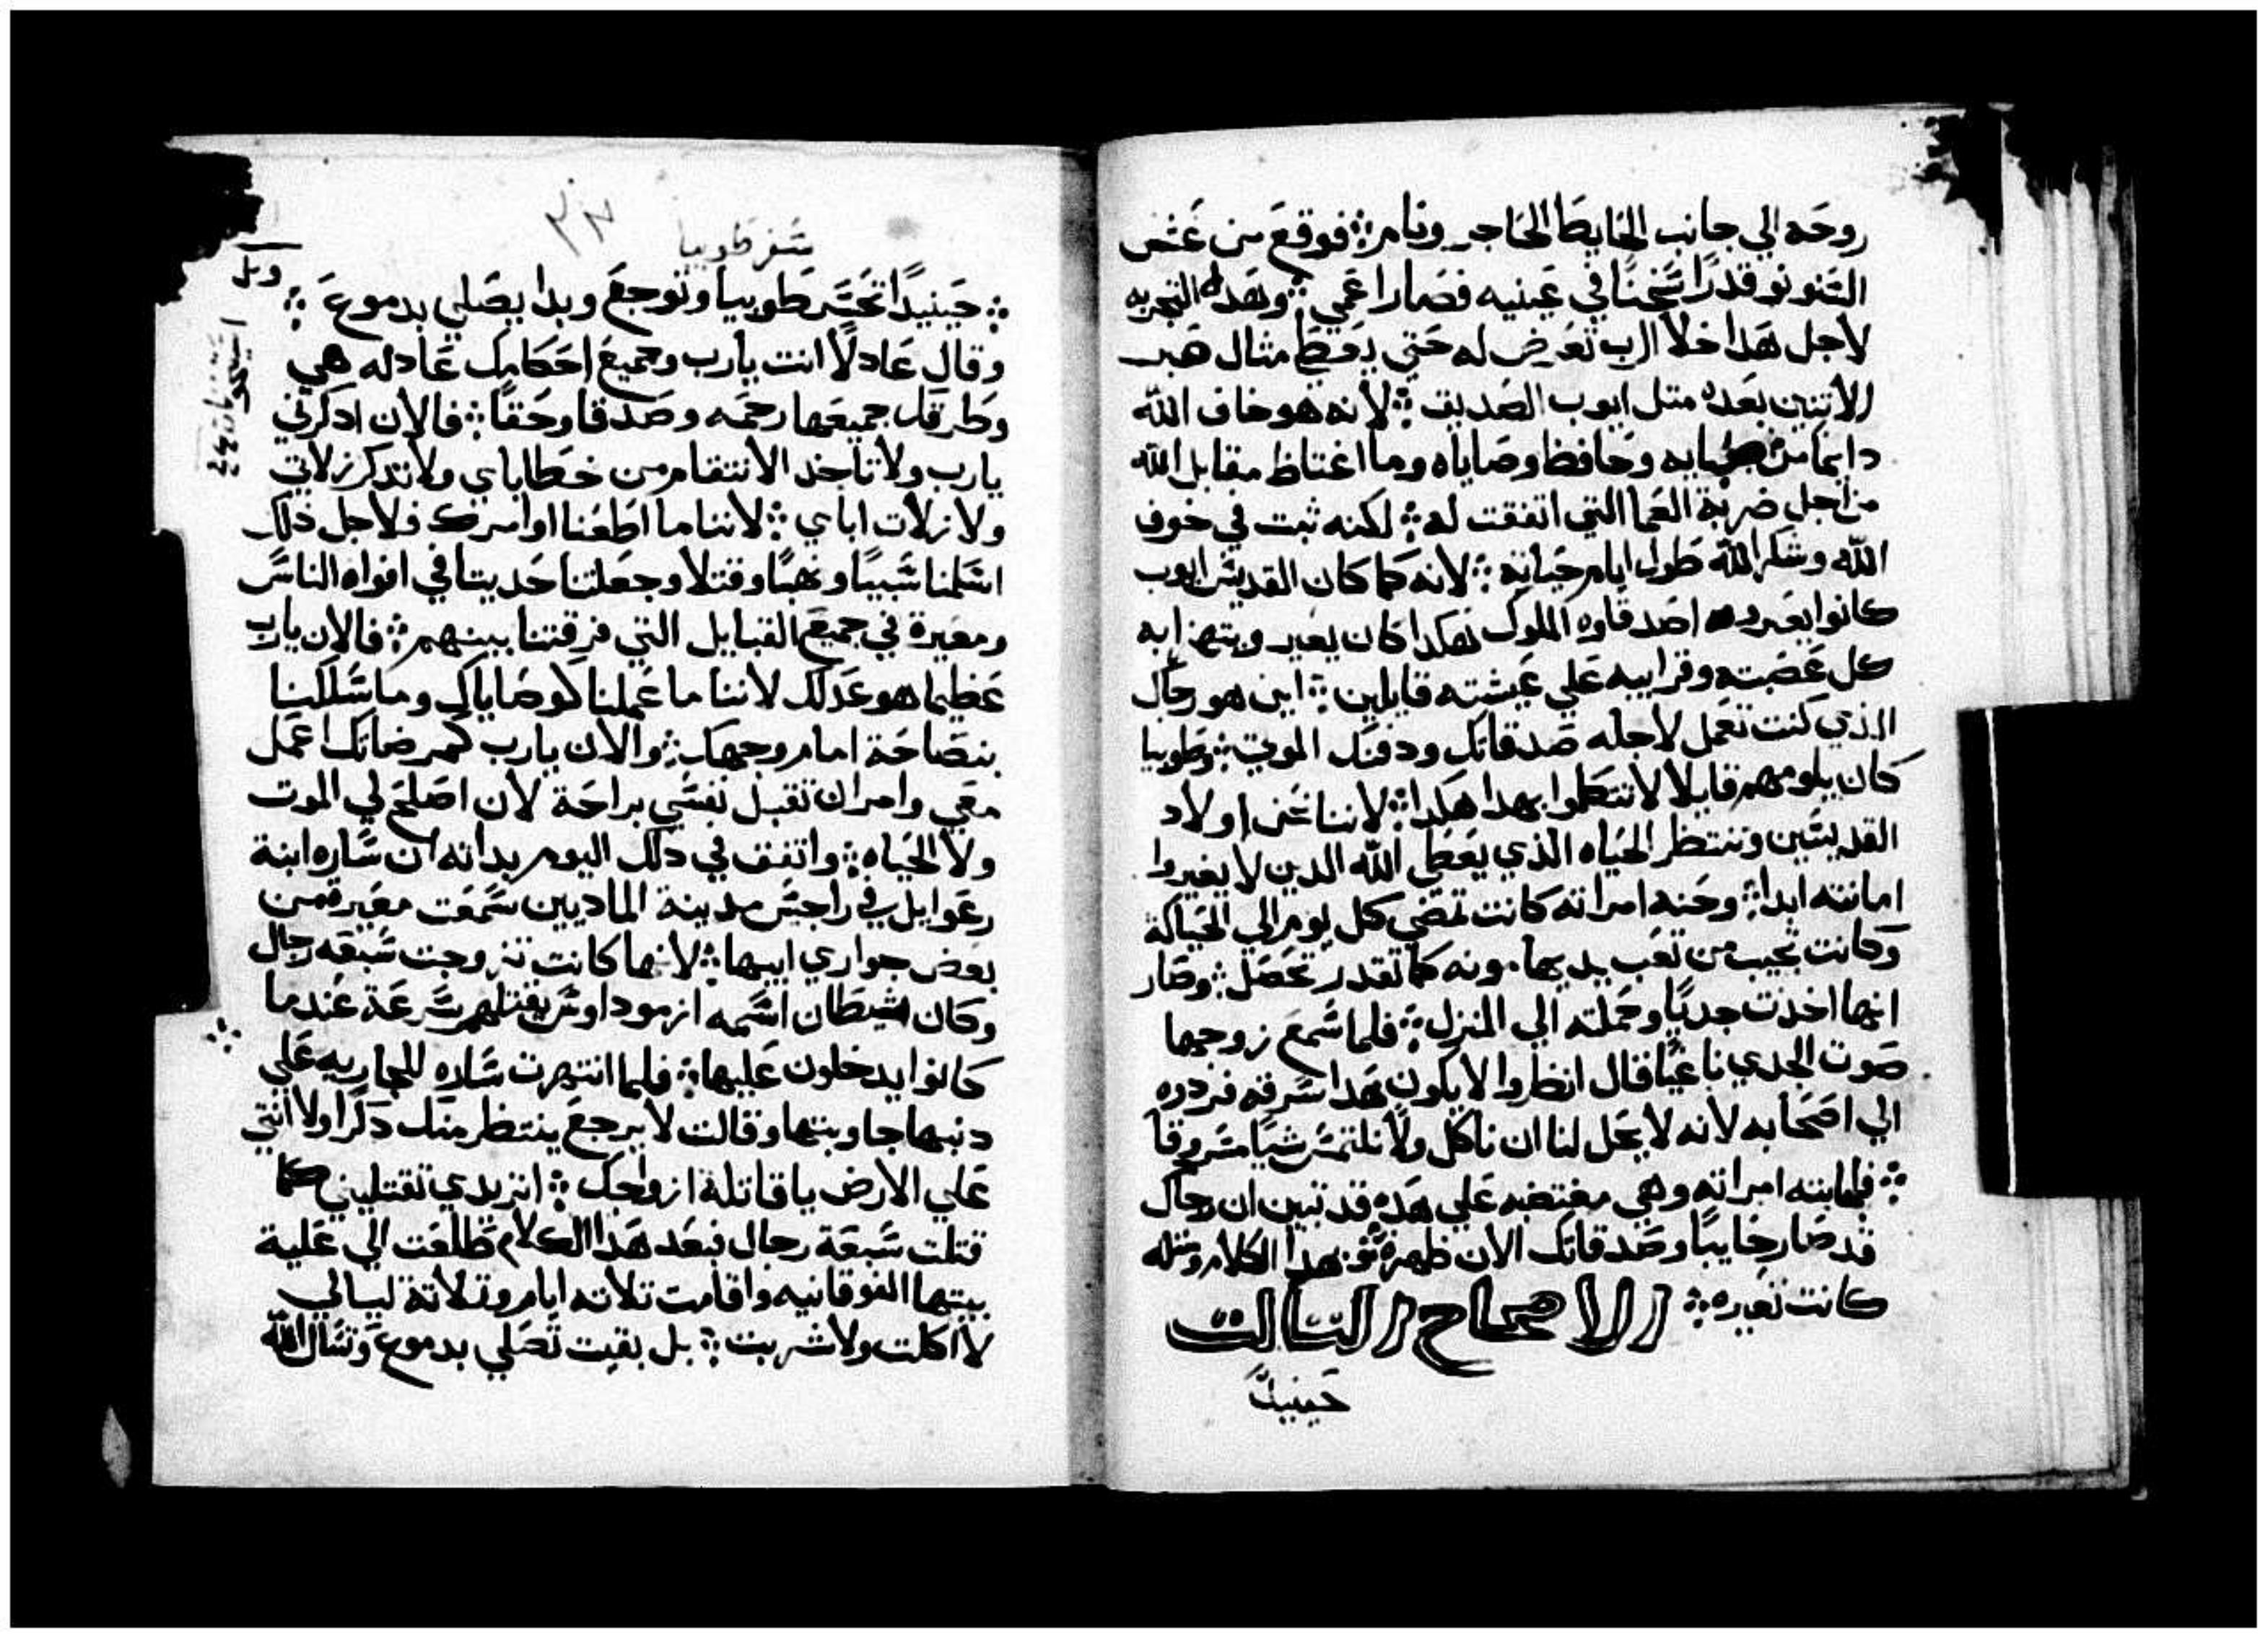 روحه الي جانب الحايط الحاجر ونام ፨ فوقع من عش
السنونو قدرا سخنا في عينيه فصار اعمي ፨ وهده التجربه
لاجل هدا خلا الرب تعرض له حتي يعطا مثال صبر
للاتيين بعده متل ايوب الصديق ፨ لانه هو خاف الله
دايما من صبايه وحافظ وصاياه وما اغتاظ مقابل الله
من اجل ضربة العما التي اتفقت له ፨ لكنه ثبت في خوف
الله وشكر الله طول ايام حياته ፨ لانه كما كان القديس ايوب
كانوا يعيروه اصدقاوه الملوك هكدا كان يعير ويتهزا به
كل عصبته وقرايبه علي عيشته قايلين ፨ اين هو رجاك
الذي كنت تعمل لاجله صدقاتك ودفنك الموتي ፨ وطوبيا
كان يلومهم قايلا لا تتكلموا بهدا هكدا ፨ لاننا نحن اولاد
القديسين وننتظر الحياه الذي يعطي الله الدين لا يغيروا
امانته ابدا ፨ وحنه امراته كانت تمضي كل يوم الي الحياكة
وكانت تجيب من تعب يديها مونه كما تقدر تحصل ፨ وصار
انها اخذت جديا وحملته الي المنزل ፨ فلما سمع زوجها
صوت الجدي ناغيا قال انظروا لا يكون هدا سرقه فردوه
الي اصحابه لانه لا يحل لنا ان ناكل ولا نلتمس شيا مسروقا
፨ فلجابته امراته وهي مغتضبه علي هده قد تبين ان رجاك
قد صار خايبا وصدقاتك الان ظهرة ፨ فبهدا الكلام ومثله
كانت تعيره ፨ الاصحاح التالت
حينيدا
سفر طوبيا
٣٢
፨ حينيدا تحسر طوبيا وتوجع وبدا يصلي بدموع ፨
وقال عادلا انت يارب وجميع احكامك عادله هي
وطرقك جميعها رحمه وصدقا وحقا ፨ فالان ادكرني
يارب ولا تاخد الانتقام من خطاياي ولا تتدكر زلاتي
ولا زلات اباي ፨ لاننا ما اطعنا اوامرك فلاجل ذلك
اسلمنا سبيا ونهبا وقتلا وجعلتنا حديتا في افواه الناس
ومعيرة في جميع القبايل التي فرقتنا بينهم ፨ فالان يارب
عظيما هو عدلك لاننا ما عملنا كوصاياك وما سللكنا
بنصاحة امام وجهك ፨ والان يارب كمرضاتك اعمل
معي وامر ان تقبل نفسي براحة لان اصلح لي الموت
ولا الحياه ፨ واتفق في دلك اليوم بداته ان ساره ابنة
رعوايل في راجيس مدينة الماديين سمعت معيرة من
بعض جواري ابيها ፨ لانها كانت تزوجت سبعه رجال
وكان شيطان اسمه ازموداوس يقتلهم سرعة عندما
كانوا يدخلون عليها ፨ فلما انتهرت ساره للجاريه علي
دنبها جاوبتها وقالت لا يرجع ينتظر منك دكرا ولا انتي
علي الارض يا قاتلة ازواجك ፨ اتريدي تقتليني كما
قتلت سبعة رجال فبعد هدا الكلام طلعت الي علية
بيتها الفوقانيه واقامت تلاته ايام وتلاتة ليالي
لا اكلت ولا شربت ፨ بل بقيت تصلي بدموع وتسال الله